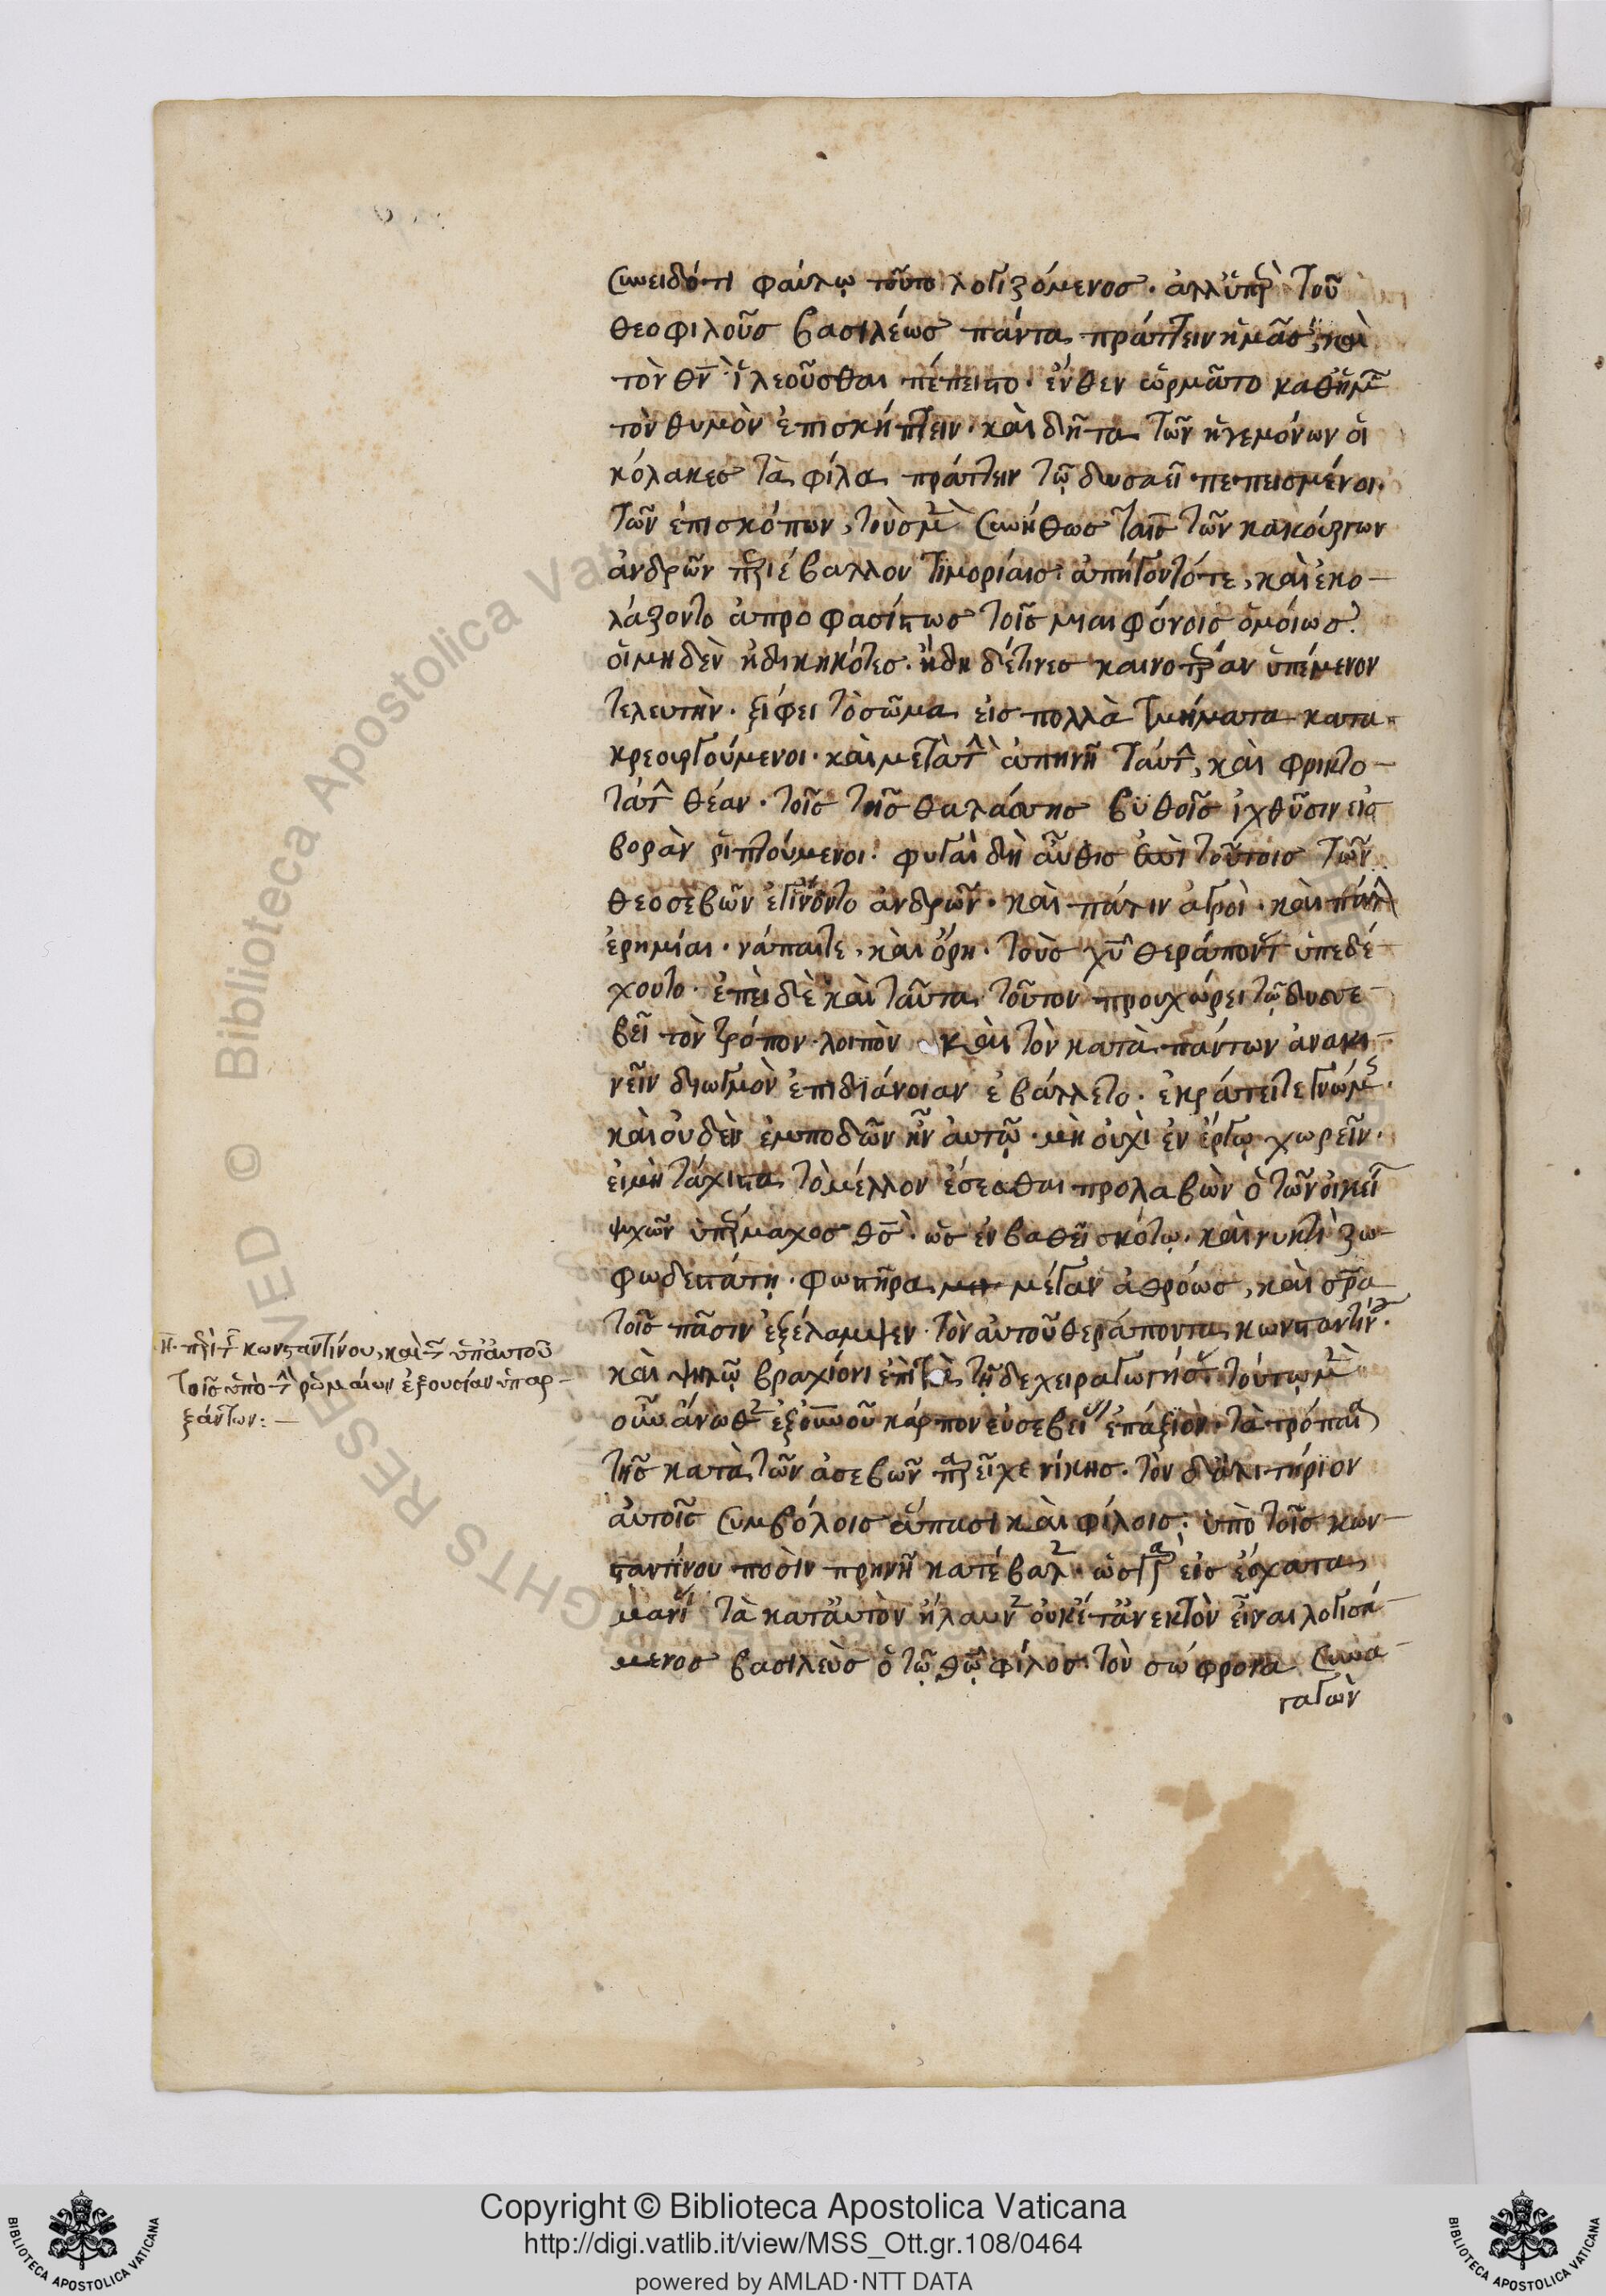 συνειδότι φαύλῳ τοῦτο λογιζόμενος· ἀλλ' ὑπὲρ τοῦ
θεοφιλοῦς βασιλέως πάντα πράττειν ἡμᾶς, καὶ
τὸν θν̅ ἱλεοῦσθαι πέπειστο· ἔνθεν ὡρμᾶτο καθ' ἡμῶν
τὸν θυμὸν ἐπισκήπτειν· καὶ δῆτα τῶν ἡγεμόνων οἱ
κόλακες τὰ φίλα πράττειν τῷ δυσαεῖ πεπεισμένοι·
τῶν ἐπισκόπων, τοὺς μὲν συνήθως ταῖς τῶν κακούργων
ἀνδρῶν περιέβαλλον τιμορίαις· ἀπήγοντό τε, καὶ ἐκο-
λάζοντο ἀπροφασίστως τοῖς μιαιφόνοις ὁμοίως·
οἱ μηδὲν ἠδικηκότες· ἤδη δέ τινες καινοτέραν ὑπέμενον
τελευτὴν· ξίφει τὸ σῶμα εἰς πολλὰ τμήματα κατα-
κρεοργούμενοι· καὶ μετὰ τὴν ἀπηνῆ ταύτην, καὶ φρικτο-
τάτην θέαν· τοῖς τῆς θαλάσσης βυθοῖς ἰχθῦσιν εἰς
βορὰν ῥιπτούμενοι· φυγαὶ δὴ αὖθις ἐπὶ τούτοις τῶν
θεοσεβῶν ἐγίνοντο ἀνδρῶν· καὶ πάλιν ἀγροὶ· καὶ πάλιν
ἐρημίαι· νάπαι τε, καὶ ὄρη· τοὺς χυ̅ θεράποντας ὑπεδέ-
χοντο· ἐπεὶ δὲ καὶ ταῦτα τοῦτον προυχώρει τῷ δυσσε-
βεῖ τὸν τρόπον· λοιπὸν καὶ τὸν κατὰ πάντων ἀνακι-
νεῖν διωγμὸν ἐπὶ διάνοιαν ἐβάλλετο· ἐκράτει τε γνώμης·
καὶ οὐδὲν ἐμποδῶν ἦν αὐτῷ· μὴ οὐχὶ ἐν ἔργῳ χωρεῖν·
εἰ μὴ τάχιστα τὸ μέλλον ἔσεσθαι προλαβὼν ὁ τῶν οἰκείων
ψυχῶν ὑπέρμαχος θς̅· ὡς ἐν βαθεῖ σκότῳ· καὶ νυκτὶ ζω-
φωδεστάτῃ· φωστῆρα μέγαν ἀθρόως, καὶ σρ̅α
τοῖς πᾶσιν ἐξέλαμψεν· τὸν αὐτοῦ θεράποντα κωνσταντίνον·
καὶ ὑψηλῷ βραχίονι ἐπὶ τὰ τῇδε χειραγωγήσας· τούτῳ μὲν
οὖν ἄνωθεν ἐξ οὐνοῦ κάρπον εὐσεβείας ἐπάξιον· τὰ τρόπαια
τῆς κατὰ τῶν ἀσεβῶν παρεῖχε νίκης· τὸν δ' ἀλιτήριον
αὐτοῖς συμβόλοις ἅπασι καὶ φίλοις· ὑπὸ τοῖς κων-
σταντίνου ποσὶν πρηνῆ κατέβαλεν· ὡς γὰρ εἰς ἔσχατα
μανίας τὰ κατ' αὐτὸν ἤλαυνεν οὐκέτ' ἀνεκτὸν εἶναι λογισά-
μενος βασιλεὺς ὁ τῷ θῷ φίλος· τὸν σώφρονα συνα-
γαγὼν
η· περὶ τῆς κωνσταντίνου, καὶ τῆς ὑπ' αὐτοῦ
τοῖς ὑπὸ τὴν ῥωμαίων ἐξουσίαν ὑπαρ-
ξάντων:—
Copyright © Biblioteca Apostolica Vaticana
http://digi.vatlib.it/view/MSS_Ott.gr.108/0464
powered by AMLAD·NTT DATA